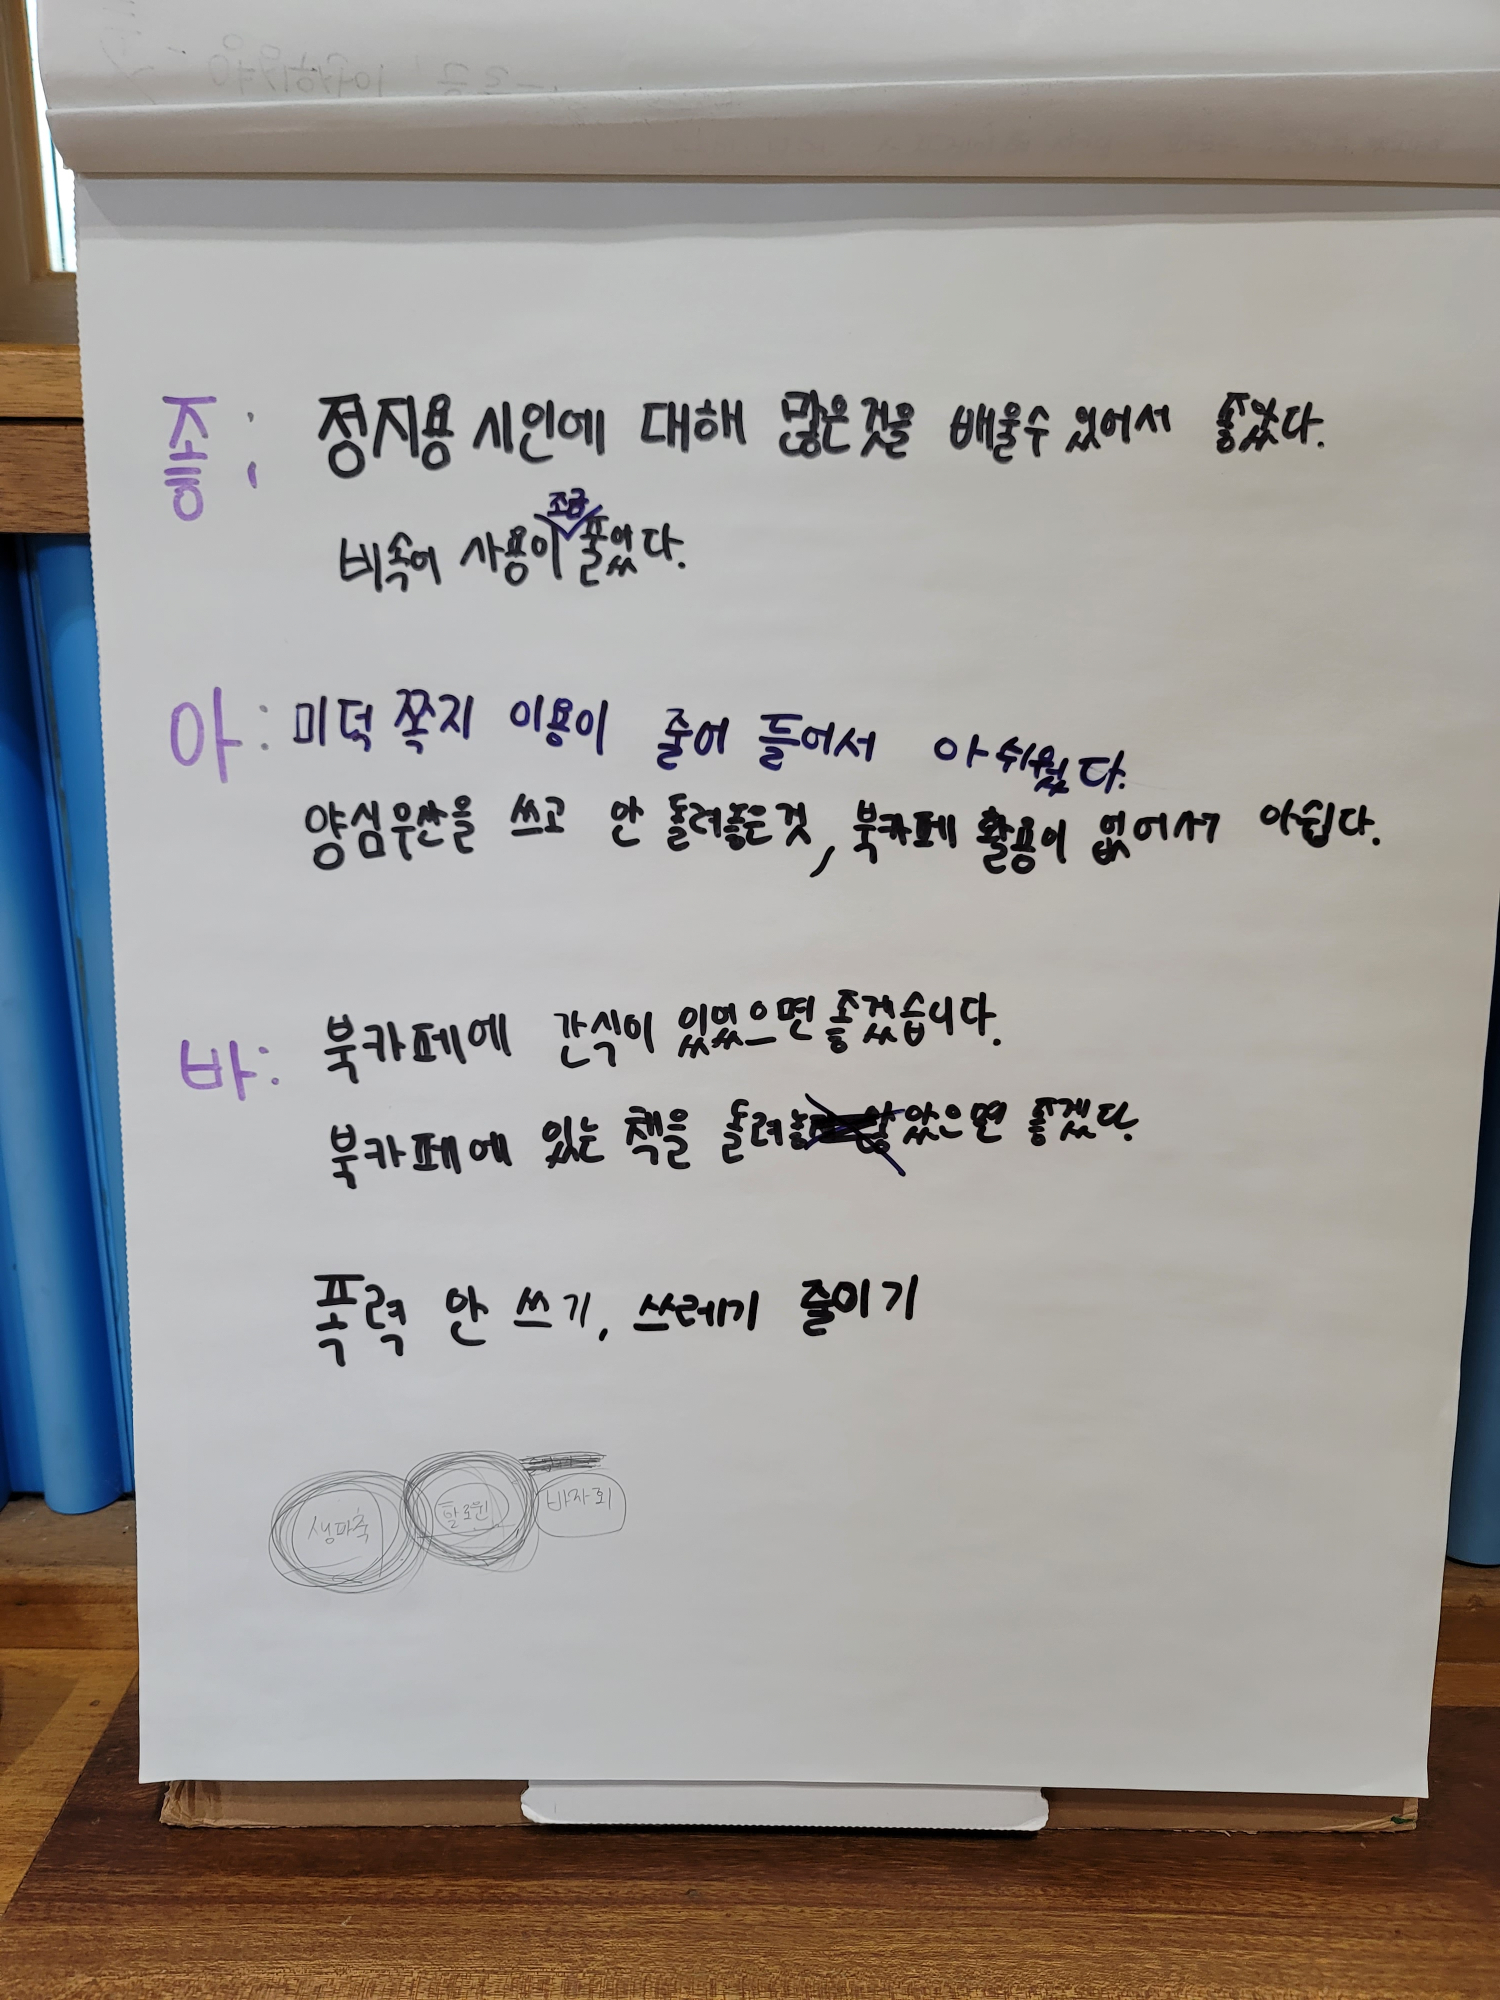 좋: 정지용 시인에 대해 많은것을 배울수 있어서 좋았다.
조금
비속어 사용이 줄었다.
아: 미덕 쪽지 이용이 줄어 들어서 아쉬웠다.
양심우산을 쓰고 안 돌려놓은것, 북카페 활용이 없어서 아쉽다.
바: 북카페에 간식이 있었으면 좋겠습니다.
북카페에 있는 책을 돌려놓았으면 좋겠다.
폭력 안 쓰기, 쓰레기 줄이기
생파축 할로윈 바자회